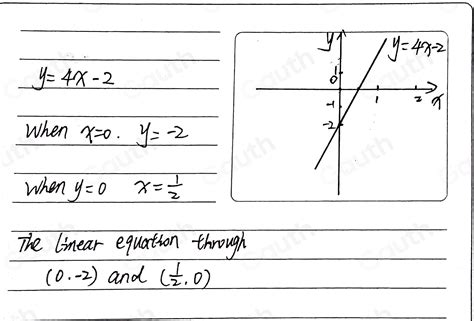 y=4x-2
when x=0. y=-2
when y=0 x=1/2
The linear equation through
(0.-2) and (1/2.0)
y
y=4x-2
0
-1
-2
1
2
x